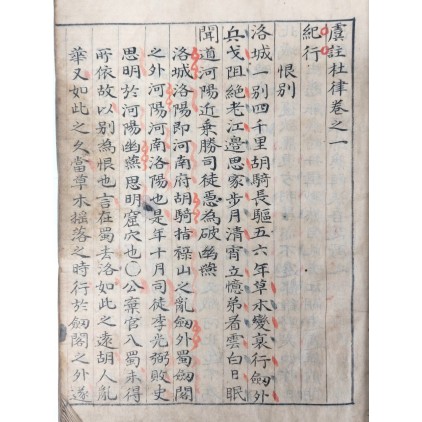 虞註杜律卷之一
紀行
恨別
洛城一別四千里胡騎長驅五六年草木變衰行劔外
兵戈阻絶老江邉思家步月清宵立憶弟看雲白日眠
聞道河陽近乗勝司徒急為破幽燕
洛城洛陽即河南府胡騎指禄山之亂劔外蜀劔閣
之外河陽河南洛陽也是年十月司徒李光弼敗史
思明於河陽幽燕思明窟穴也〇公棄官入蜀未得
所依故以别為恨也言在蜀去洛如此之遠胡人亂
華又如此之久當草木揺落之時行於劔閣之外遂